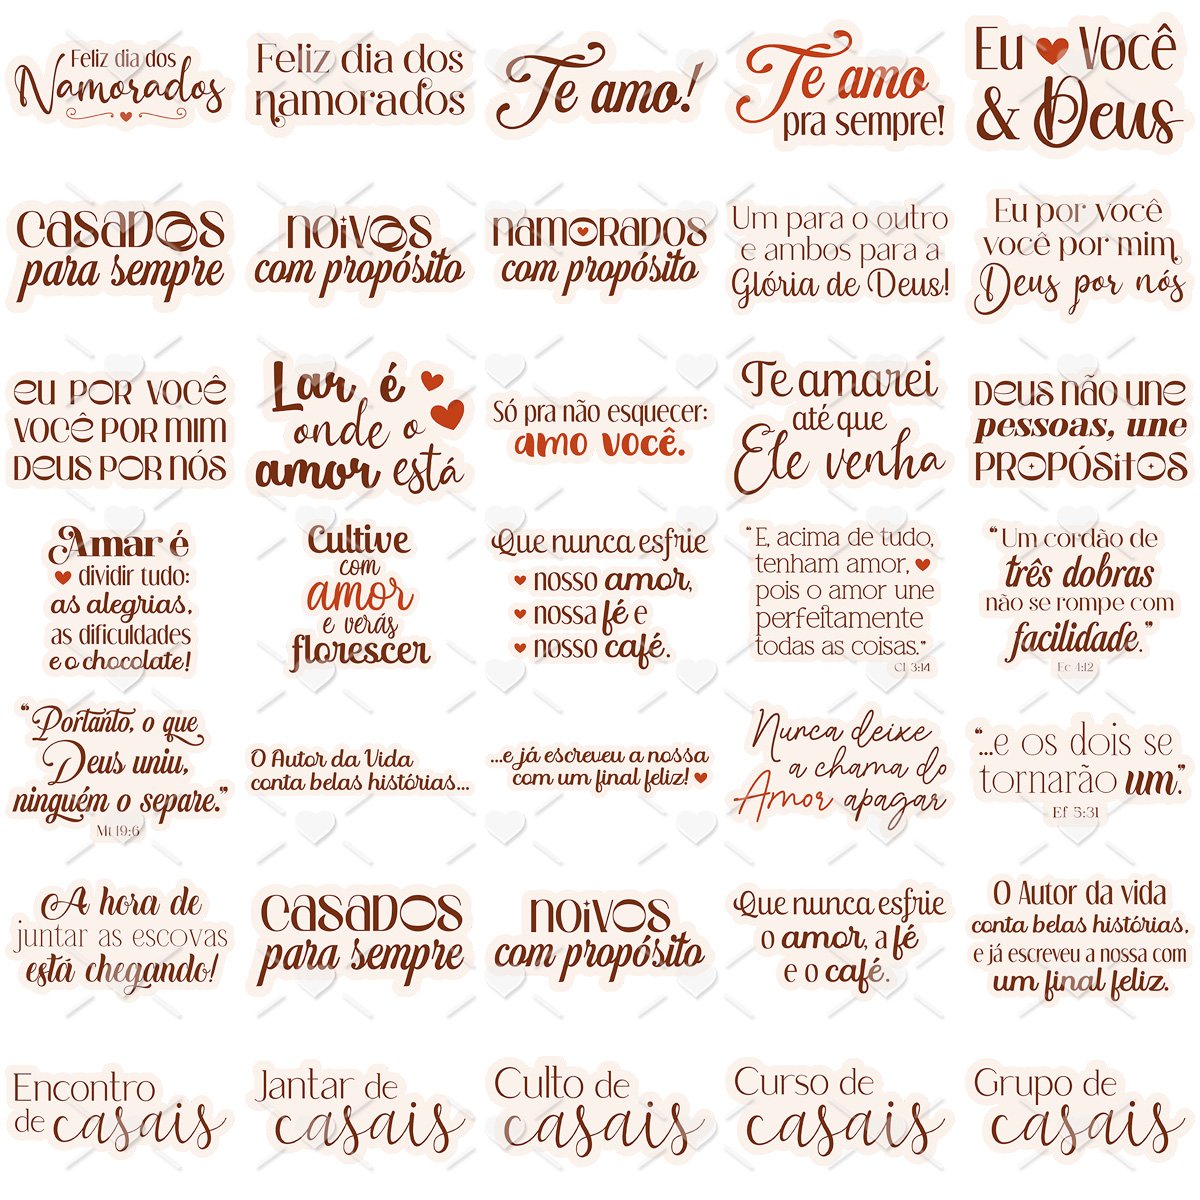 Feliz dia dos
Namorados
Feliz dia dos
namorados
Te amo!
Te amo
pra sempre!
Eu Você
& Deus
CASADOS
para sempre
NOIVOS
com propósito
NAMORADOS
com propósito
Um para o outro
e ambos para a
Glória de Deus!
Eu por você
você por mim
Deus por nós
EU POR VOCÊ
VOCÊ POR MIM
DEUS POR NÓS
Lar é
onde o
amor está
Só pra não esquecer:
amo você.
Te amarei
até que
Ele venha
DEUS NÃO UNE
pessoas, une
PROPÓSITOS
Amar é
dividir tudo:
as alegrias,
as dificuldades
e o chocolate!
Cultive
com
amor
e verás
florescer
Que nunca esfrie
nosso amor,
nossa fé e
nosso café.
"E, acima de tudo,
tenham amor,
pois o amor une
perfeitamente
todas as coisas."
Cl 3:14
"Um cordão de
três dobras
não se rompe com
facilidade."
Ec 4:12
"Portanto, o que
Deus uniu,
ninguém o separe."
Mt 19:6
O Autor da Vida
conta belas histórias...
...e já escreveu a nossa
com um final feliz!
Nunca deixe
a chama do
Amor apagar
"...e os dois se
tornarão um."
Ef 5:31
A hora de
juntar as escovas
está chegando!
CASADOS
para sempre
NOIVOS
com propósito
Que nunca esfrie
o amor, a fé
e o café.
O Autor da vida
conta belas histórias,
e já escreveu a nossa com
um final feliz.
Encontro
de casais
Jantar de
casais
Culto de
casais
Curso de
casais
Grupo de
casais